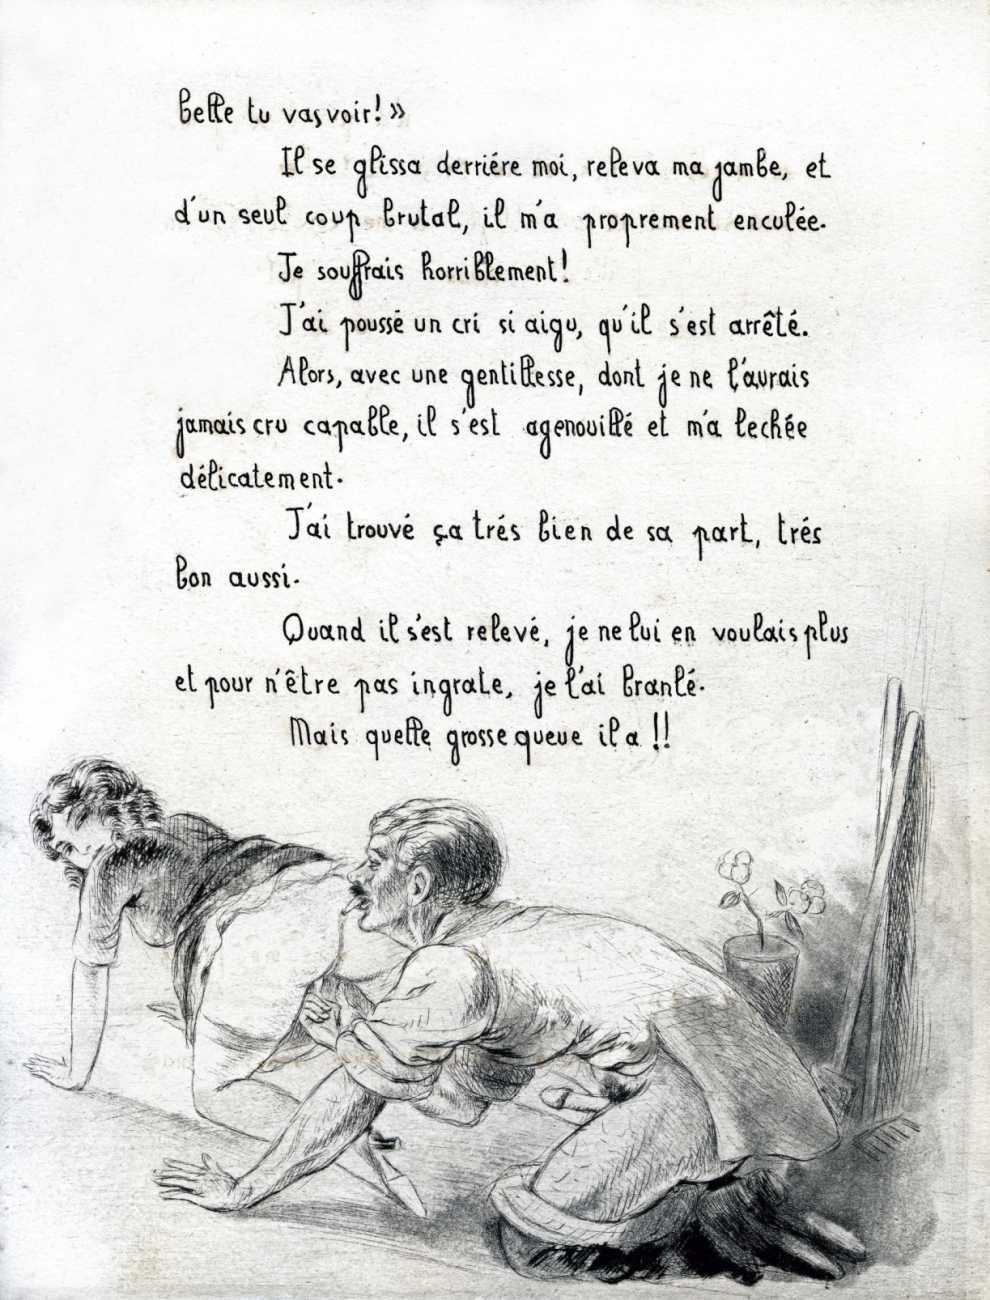 belle tu vas voir! »
Il se glissa derriére moi, releva ma jambe, et
d'un seul coup brutal, il m'a proprement enculée.
Je souffrais horriblement!
J'ai poussé un cri si aigu, qu'il s'est arrêté.
Alors, avec une gentillesse, dont je ne l'aurais
jamais cru capable, il s'est agenouillé et m'a lechée
délicatement.
J'ai trouvé ça trés bien de sa part, trés
bon aussi.
Quand il s'est relevé, je ne lui en voulais plus
et pour n'être pas ingrate, je l'ai branlé.
Mais quelle grosse queue il a !!